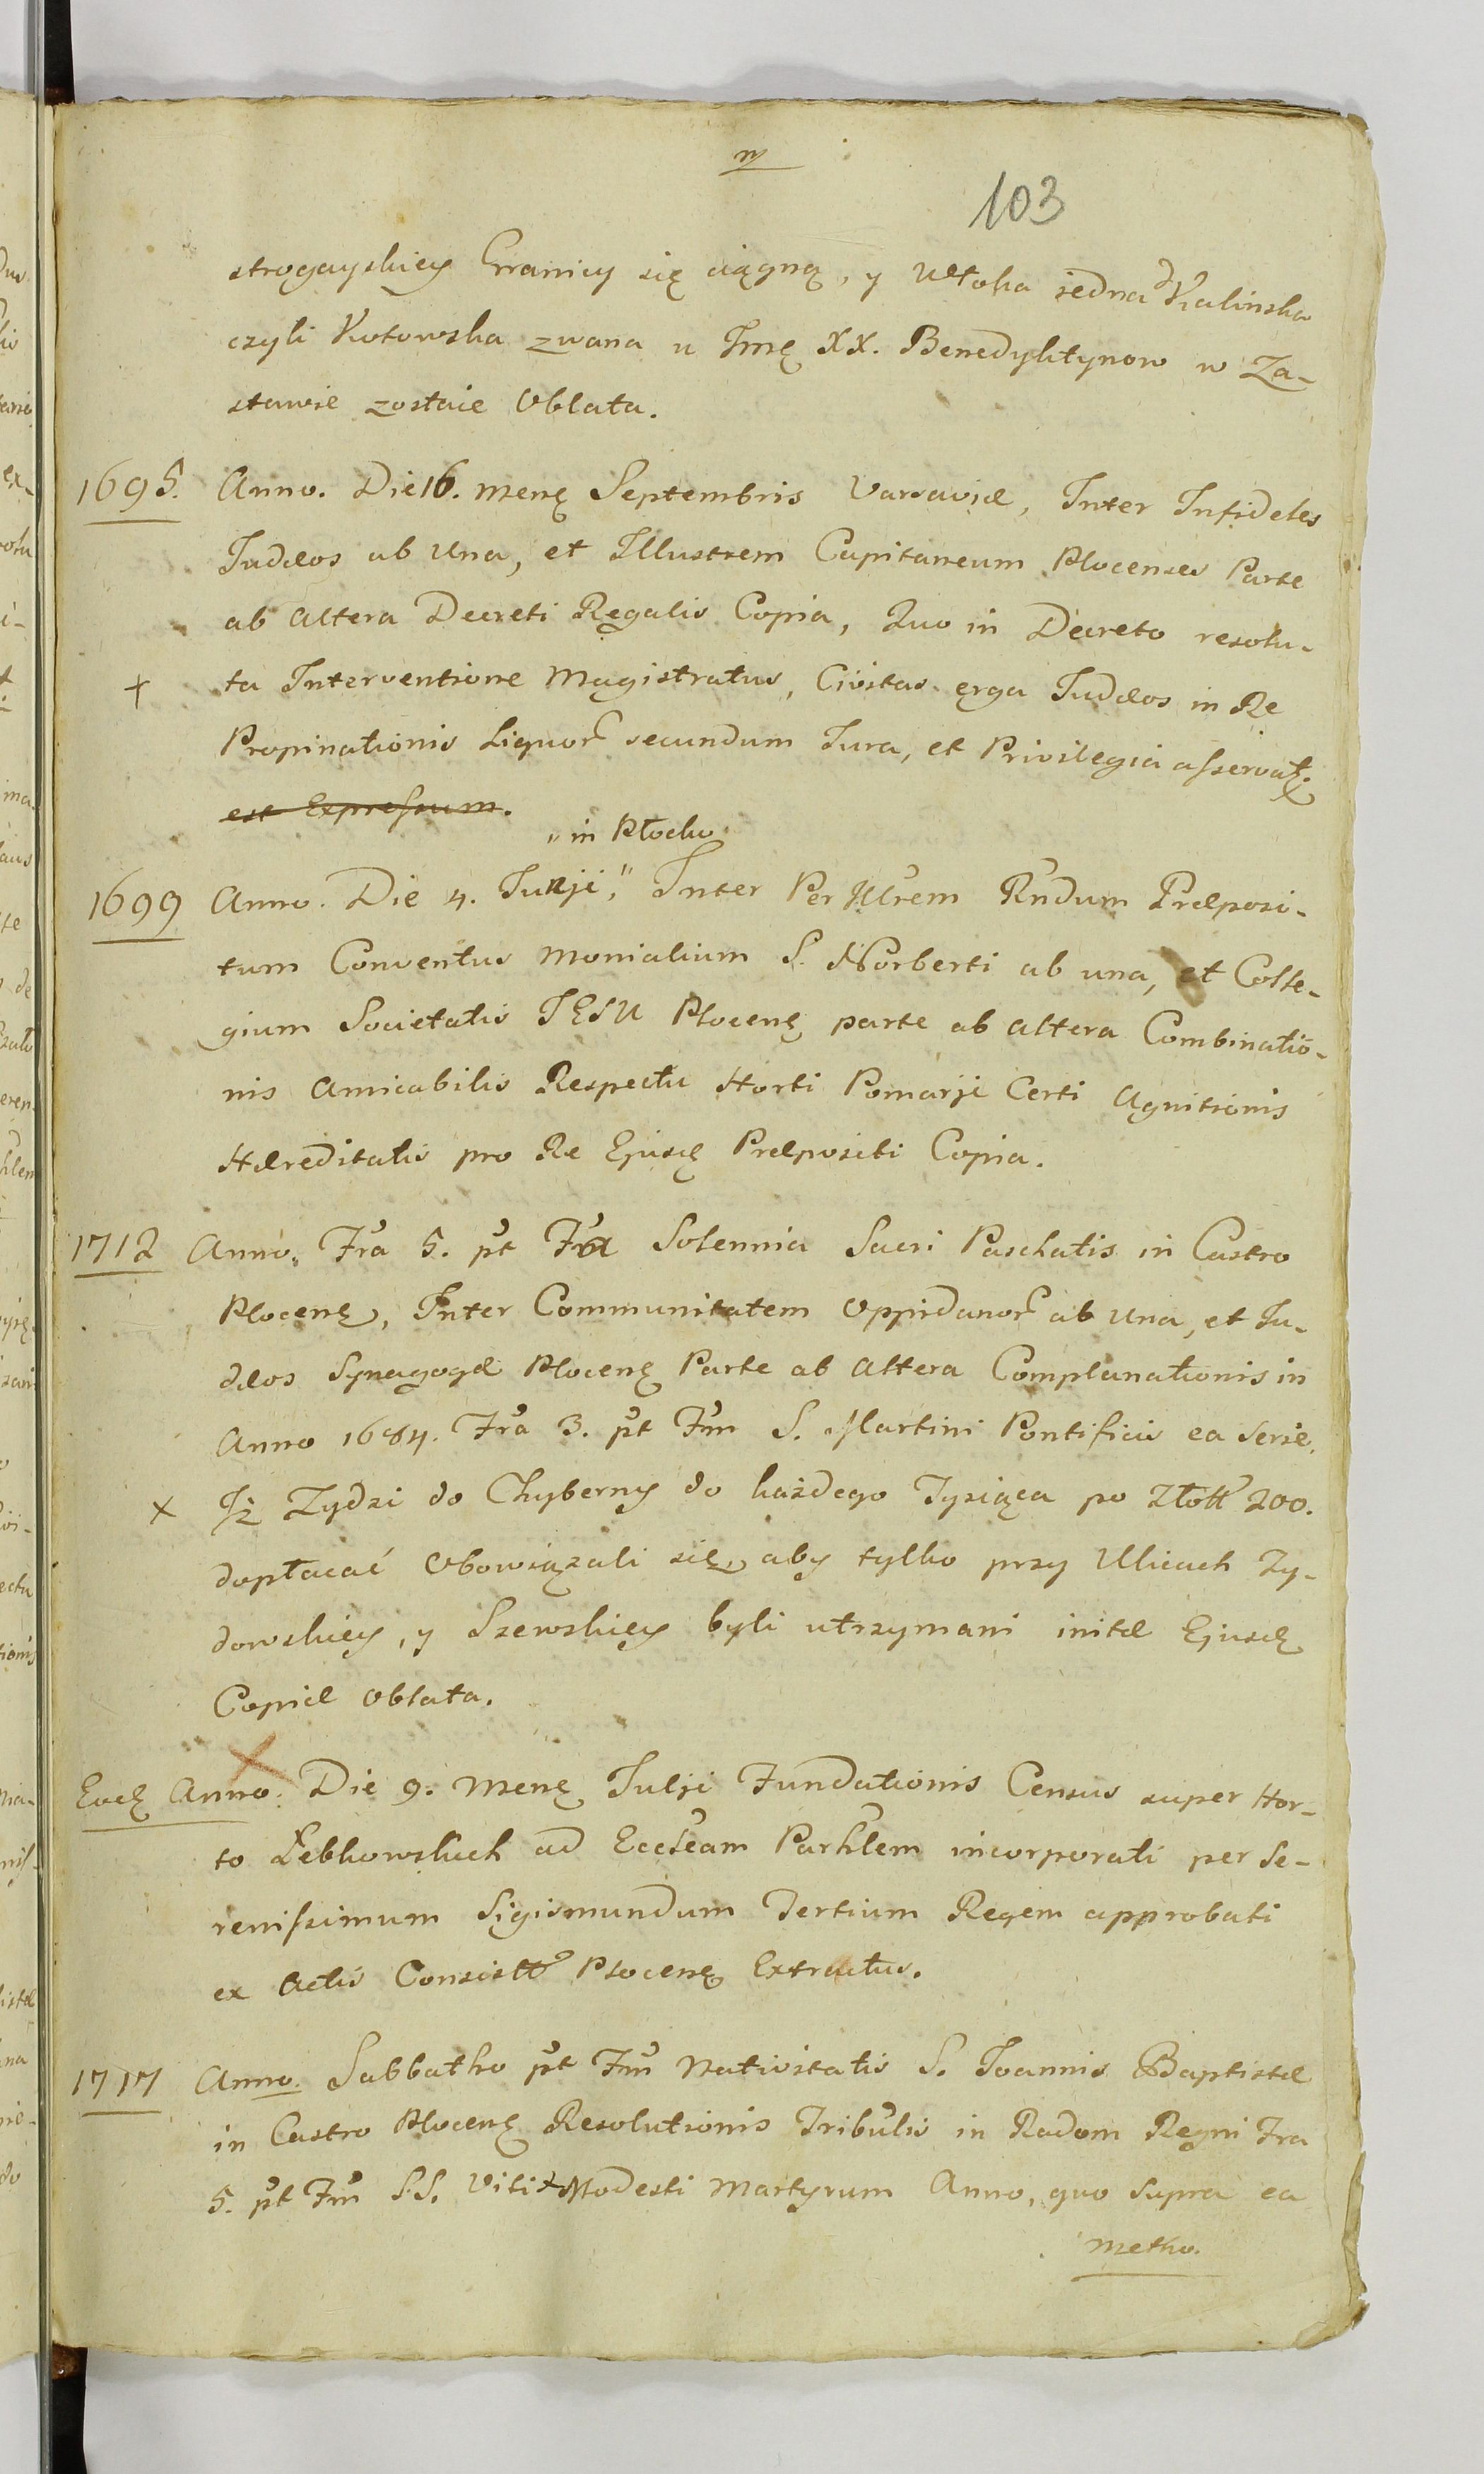 103
strogayskiey Granicy się ciągną, y Włoka jedna Kalinska
czyli Kotowska zwana u Jmę XX. Benedyktynow w Za-
stawie zostaie Oblata.
1695. Anno. Die 16. menę Septembris Varsaviæ, Inter Infideles
Judæos ab Una, et Illustrem Capitaneum Plocenses Parte
ab altera Decreti Regalis Copia, Quo in Decreto resolu-
+ ta Interventione Magistratus, Civitas erga Judæos in Re
Propinationis Liquor secundum Jura, et Privilegia asservat.
est Expressum.
"in Płocku
1699 Anno. Die 4. Junji," Inter Per Illrem Rndum Præposi-
tum Conventus Monialium S. Norberti ab una, et Colle-
gium Societatis JESU Plocenę parte ab altera Combinatio-
nis Amicabilis Respectu Horti Pomarji Certi Agnitionis
Hæreditatis pro Re Ejusdę Præpositi Copia.
1712 Anno. Fra 5. pt Fta Solennia Sacri Paschatis in Castro
Plocenę, Inter Communitatem Oppidanor ab Una, et Ju-
dæos Synagogæ Plocenę Parte ab altera Complanationis in
Anno 1684. Fra 3. pt Fm S. Martini Pontificis ea serie,
x Jż Zydzi do Chyberny do każdego Tysiąca po Złott 200.
dopłacać Obowiązali się, aby tylko przy Ulicach Zy-
dowskiey, y Szewskiey byli utrzymani initæ Ejusdę
Copiæ Oblata.
Eodę Anno. Die 9. Menę Julji Fundationis Census super Hor-
to Łebkowskich ad Eccleam Parhlem incorporati per Se-
renissimum Sigismundum Tertium Regem approbati
ex Actis Consistt Plocenę Extractus.
1717 Anno. Sabbatho pt Fm Nativitatis S. Joannis Baptistæ
in Castro Plocenę Resolutionis Tribulis in Radom Regni Fra
5. pt Fm S.S. Viti & Modesti Martyrum Anno, quo supra ea
metho.